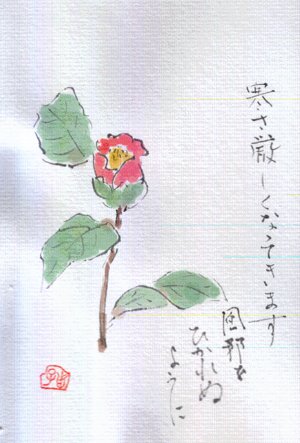 寒さ厳しくなってきます
風邪を
ひかれぬ
ように